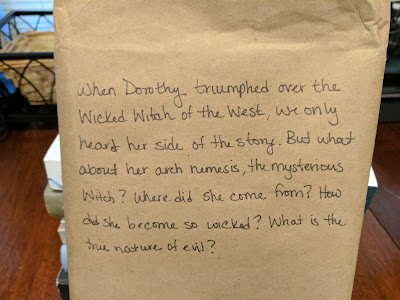 When Dorothy triumphed over the
Wicked Witch of the West, we only
heard her side of the story. But what
about her arch nemesis, the mysterious
Witch? Where did she come from? How
did she become so wicked? What is the
true nature of evil?